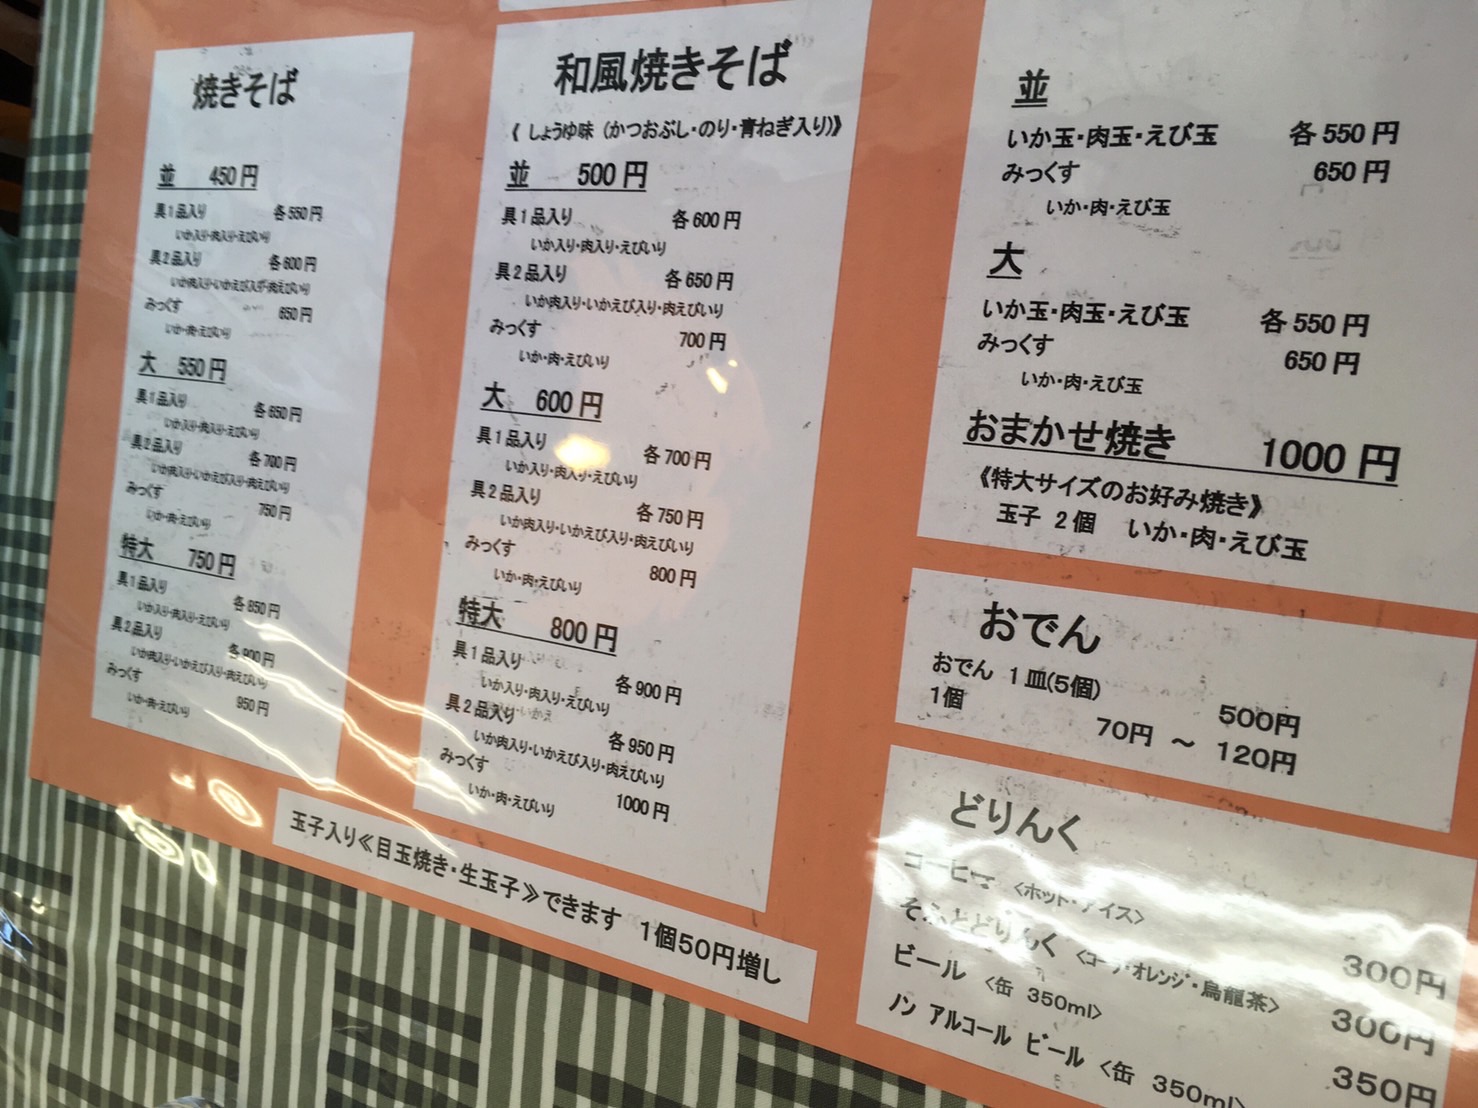 焼きそば
並 450円
具1品入り 各550円
いか入り・肉入り・えびいり
具2品入り 各600円
いか肉入り・いかえび入り・肉えびいり
みっくす 650円
いか・肉・えびいり
大 550円
具1品入り 各650円
いか入り・肉入り・えびいり
具2品入り 各700円
いか肉入り・いかえび入り・肉えびいり
みっくす 750円
いか・肉・えびいり
特大 750円
具1品入り 各850円
いか入り・肉入り・えびいり
具2品入り 各900円
いか肉入り・いかえび入り・肉えびいり
みっくす 950円
いか・肉・えびいり
和風焼きそば
《 しょうゆ味 (かつおぶし・のり・青ねぎ入り)》
並 500円
具1品入り 各600円
いか入り・肉入り・えびいり
具2品入り 各650円
いか肉入り・いかえび入り・肉えびいり
みっくす 700円
いか・肉・えびいり
大 600円
具1品入り 各700円
いか入り・肉入り・えびいり
具2品入り 各750円
いか肉入り・いかえび入り・肉えびいり
みっくす 800円
いか・肉・えびいり
特大 800円
具1品入り 各900円
いか入り・肉入り・えびいり
具2品入り 各950円
いか肉入り・いかえび入り・肉えびいり
みっくす 1000円
いか・肉・えびいり
玉子入り≪目玉焼き・生玉子≫できます 1個50円増し
並
いか玉・肉玉・えび玉 各550円
みっくす 650円
いか・肉・えび玉
大
いか玉・肉玉・えび玉 各550円
みっくす 650円
いか・肉・えび玉
おまかせ焼き 1000円
《特大サイズのお好み焼き》
玉子 2個 いか・肉・えび玉
おでん
おでん 1皿(5個) 500円
1個 70円 ～ 120円
どりんく
コーヒー <ホット・アイス> 300円
そふとどりんく <コーラ・オレンジ・烏龍茶> 300円
ビール <缶 350ml> 350円
ノン アルコール ビール <缶 350ml>